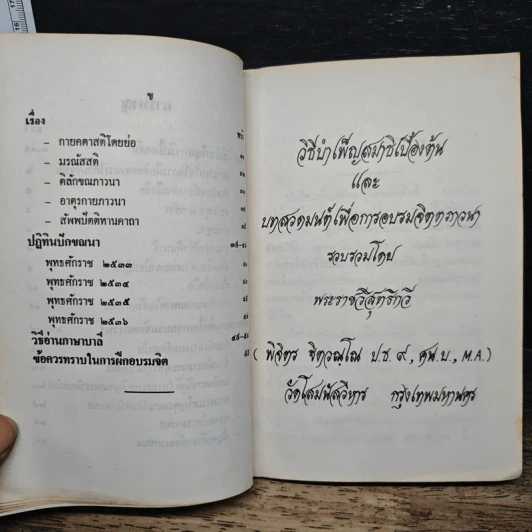 ข
เรื่อง
– กายคตาสติโดยย่อ
– มรณัสสติ
– ติลักขณภาวนา
– อาตุรกายภาวนา
– สัพพปัตติทานคาถา
ปฏิทินปักขคณนา
พุทธศักราช ๒๕๓๓
พุทธศักราช ๒๕๓๔
พุทธศักราช ๒๕๓๕
พุทธศักราช ๒๕๓๖
วิธีอ่านภาษาบาลี
ข้อควรทราบในการฝึกอบรมจิต
วิธีบำเพ็ญสมาธิเบื้องต้น
และ
บทสวดมนต์เพื่อการอบรมจิตตภาวนา
รวบรวมโดย
พระราชวิสุทธิกวี
(พิจิตร ฐิตวณฺโณ ป.ธ. ๙, ศน.บ., M.A.)
วัดโสมนัสวิหาร กรุงเทพมหานคร